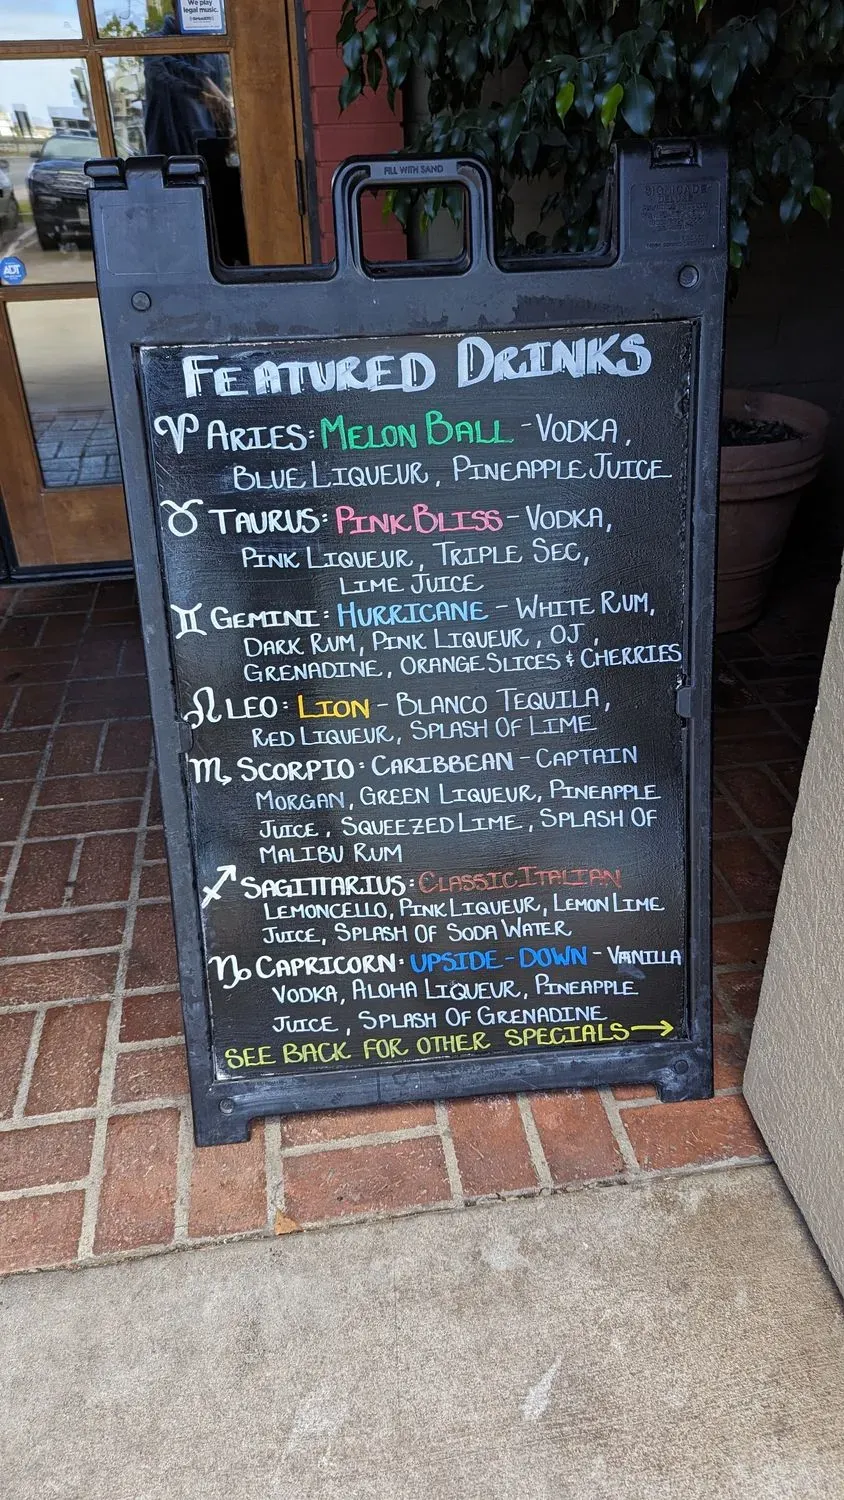 We play
legal music.
ADT
FILL WITH SAND
SIGNICADE
DELUXE
FEATURED DRINKS
♈ ARIES: MELON BALL - VODKA,
BLUE LIQUEUR, PINEAPPLE JUICE
♉ TAURUS: PINK BLISS - VODKA,
PINK LIQUEUR, TRIPLE SEC,
LIME JUICE
♊ GEMINI: HURRICANE - WHITE RUM,
DARK RUM, PINK LIQUEUR, OJ,
GRENADINE, ORANGE SLICES & CHERRIES
♌ LEO: LION - BLANCO TEQUILA,
RED LIQUEUR, SPLASH OF LIME
♏ SCORPIO: CARIBBEAN - CAPTAIN
MORGAN, GREEN LIQUEUR, PINEAPPLE
JUICE, SQUEEZED LIME, SPLASH OF
MALIBU RUM
♐ SAGITTARIUS: CLASSIC ITALIAN
LEMONCELLO, PINK LIQUEUR, LEMON LIME
JUICE, SPLASH OF SODA WATER
♑ CAPRICORN: UPSIDE-DOWN - VANILLA
VODKA, ALOHA LIQUEUR, PINEAPPLE
JUICE, SPLASH OF GRENADINE
SEE BACK FOR OTHER SPECIALS →